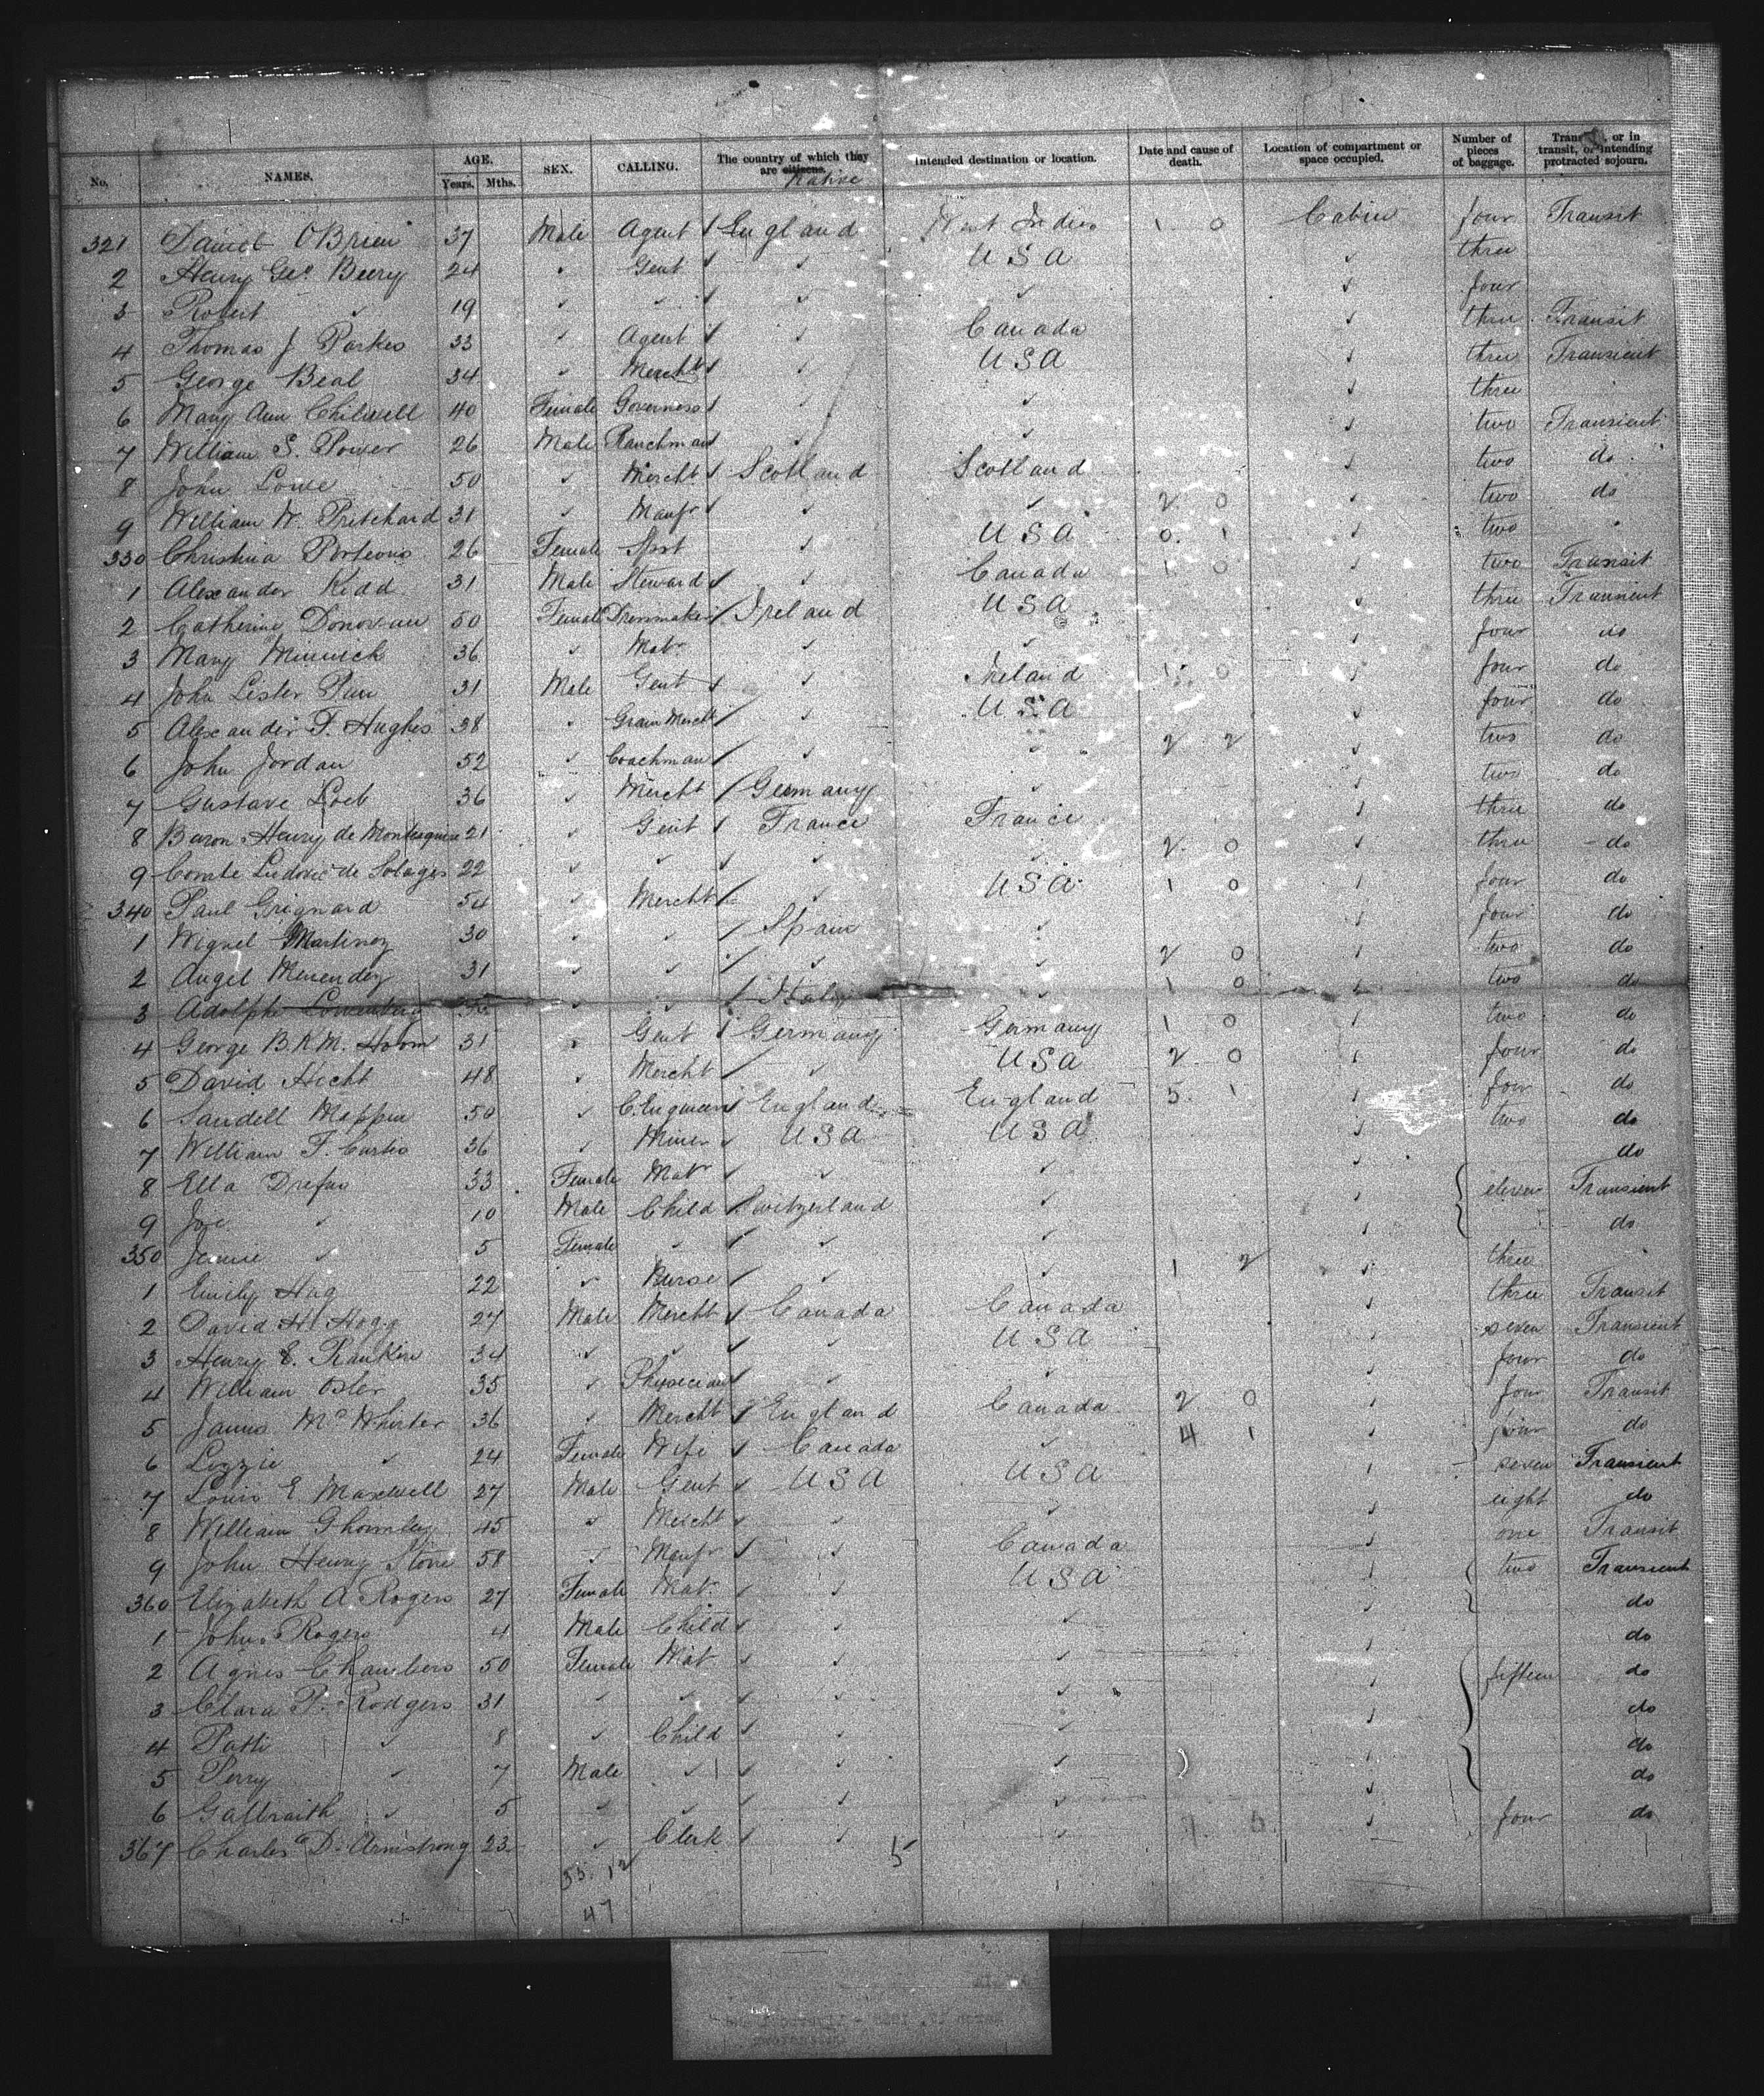 No. NAMES. AGE. Years. Mths. SEX. CALLING. The country of which they are citizens. Native Intended destination or location. Date and cause of death. Location of compartment or space occupied. Number of pieces of baggage. or in transit, or intending protracted sojourn.
321 Daniel OBrien 37 Male Agent England West Indies 1 0 Cabin four Transit
2 Henry Geo Beery 24 ✓ Gent ✓ USA ✓ three
3 Robert ✓ 19 ✓ ✓ ✓ ✓ ✓ four
4 Thomas J Parkes 33 ✓ Agent ✓ Canada ✓ three Transit
5 George Beal 34 ✓ Mercht ✓ USA ✓ three Transient
6 Mary Ann Chilwell 40 Female Governess ✓ ✓ ✓ three
7 William S. Power 26 Male Ranchman ✓ ✓ ✓ two Transient
8 John Lowe 50 ✓ Mercht Scotland Scotland ✓ two do
9 William W. Pritchard 31 ✓ Manfr ✓ ✓ 2 0 ✓ two do
330 Christina Porteous 26 Female Spst ✓ USA 0 1 ✓ two
1 Alexander Kidd 31 Male Steward ✓ Canada 1 0 ✓ two Transit
2 Catherine Donovan 50 Female Dressmaker Ireland USA ✓ three Transient
3 Mary 36 ✓ Matr ✓ ✓ ✓ four do
4 John Lister Pim 31 Male Gent ✓ Ireland 1 0 ✓ four do
5 Alexander F. Hughes 38 ✓ Grain Mercht ✓ USA ✓ four do
6 John Jordan 52 ✓ Coachman ✓ ✓ 2 2 ✓ two do
7 Gustave Loeb 36 ✓ Mercht Germany ✓ ✓ two do
8 Baron Henry de Montesquieu 21 ✓ Gent France France ✓ three do
9 Comte Ludovic de Solages 22 ✓ ✓ ✓ ✓ 2 0 ✓ three do
340 Paul Grignard 54 ✓ Mercht ✓ USA 1 0 ✓ four do
1 Martinez 30 ✓ ✓ Spain ✓ ✓ four do
2 Angel Menendez 31 ✓ ✓ ✓ ✓ 2 0 ✓ two do
3 Adolph ✓ ✓ Italy ✓ 1 0 ✓ two do
4 George B.R.M. 31 ✓ Gent Germany Germany 1 0 ✓ two do
5 David Hecht 48 ✓ Mercht ✓ USA 2 0 ✓ four do
6 Sandell Mappin 50 ✓ C. Engineer England England 5 1 ✓ four do
7 William F. Curtis 36 ✓ Miner USA USA ✓ two do
8 Ella Drefus 33 Female Matr ✓ ✓ ✓ do
9 Joe ✓ 10 Male Child Switzerland ✓ ✓ eleven Transient
350 Jennie ✓ 5 Female ✓ ✓ ✓ ✓ do
1 Emily Hug 22 ✓ Nurse ✓ ✓ 1 2 ✓ three
2 David H Hogg 27 Male Mercht Canada Canada ✓ three Transit
3 Henry E. Rankin 34 ✓ ✓ ✓ USA ✓ seven Transient
4 William Osler 35 ✓ Physician ✓ ✓ ✓ four do
5 James McWhirter 36 ✓ Mercht England Canada 2 0 ✓ four Transit
6 Lizzie ✓ 24 Female Wife Canada ✓ 4 1 ✓ four do
7 Louis E. Maxwell 27 Male Gent USA USA ✓ seven Transient
8 William 45 ✓ Mercht ✓ ✓ ✓ eight do
9 John Henry Stone 58 ✓ Manfr ✓ Canada ✓ one Transit
360 Elizabeth A. Rogers 27 Female Mat ✓ USA ✓ two Transient
1 John Rogers 4 Male Child ✓ ✓ ✓ do
2 Agnes Chambers 50 Female Mat ✓ ✓ ✓ do
3 Clara P. Rodgers 31 ✓ ✓ ✓ ✓ ✓ fifteen do
4 Patti ✓ 8 ✓ Child ✓ ✓ ✓ do
5 Perry ✓ 7 Male ✓ ✓ ✓ ✓ do
6 Galbraith ✓ 5 ✓ ✓ ✓ ✓ ✓ do
367 Charles D. Armstrong 23 ✓ Clerk ✓ ✓ ✓ four do
55. 12
5
47